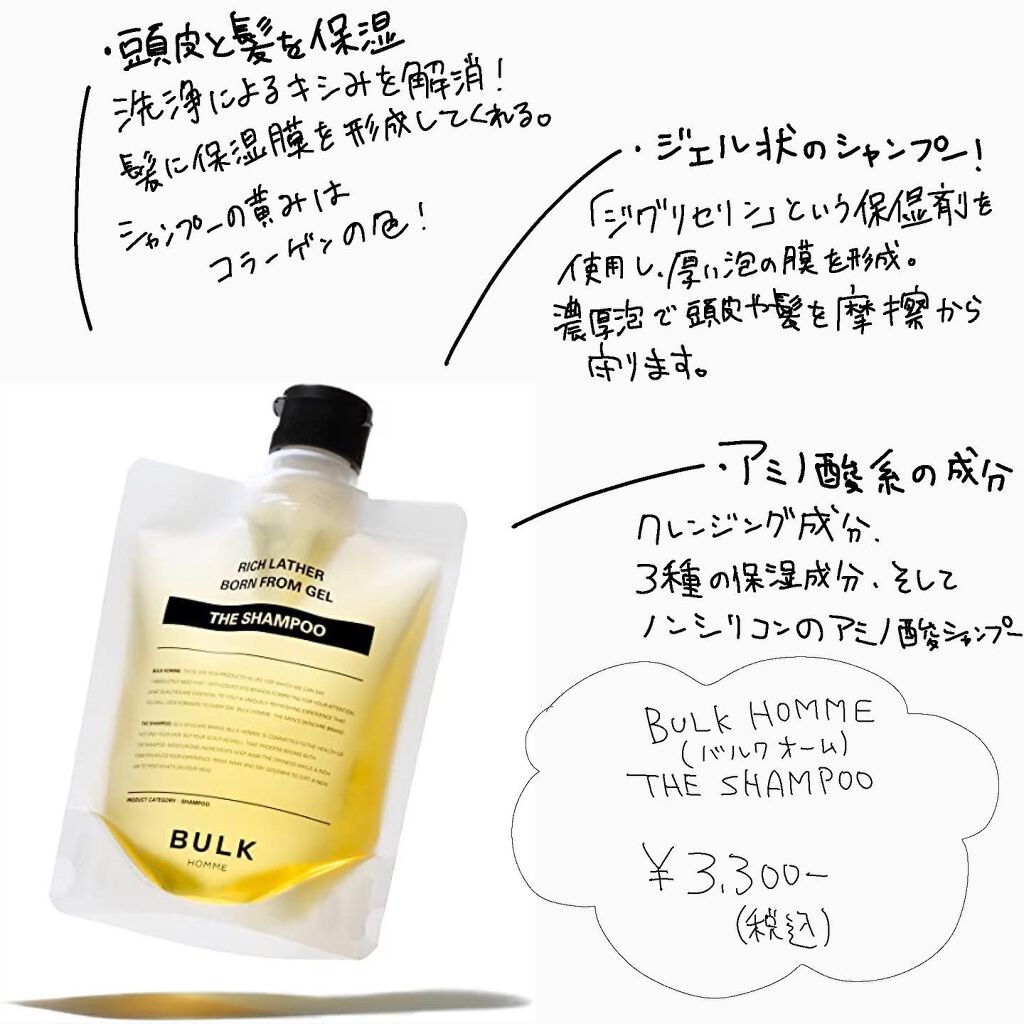 ・頭皮と髪を保湿
洗浄によるキシみを解消！
髪に保湿膜を形成してくれる。
シャンプーの黄みは
コラーゲンの色！
・ジェル状のシャンプー！
「ジグリセリン」という保湿剤を
使用し、厚い泡の膜を形成。
濃厚泡で頭皮や髪を摩擦から
守ります。
・アミノ酸系の成分
クレンジング成分、
3種の保湿成分、そして
ノンシリコンのアミノ酸シャンプー
RICH LATHER
BORN FROM GEL
THE SHAMPOO
PRODUCT CATEGORY : SHAMPOO
BULK
HOMME
BULK HOMME
(バルクオーム)
THE SHAMPOO
¥3,300-
(税込)